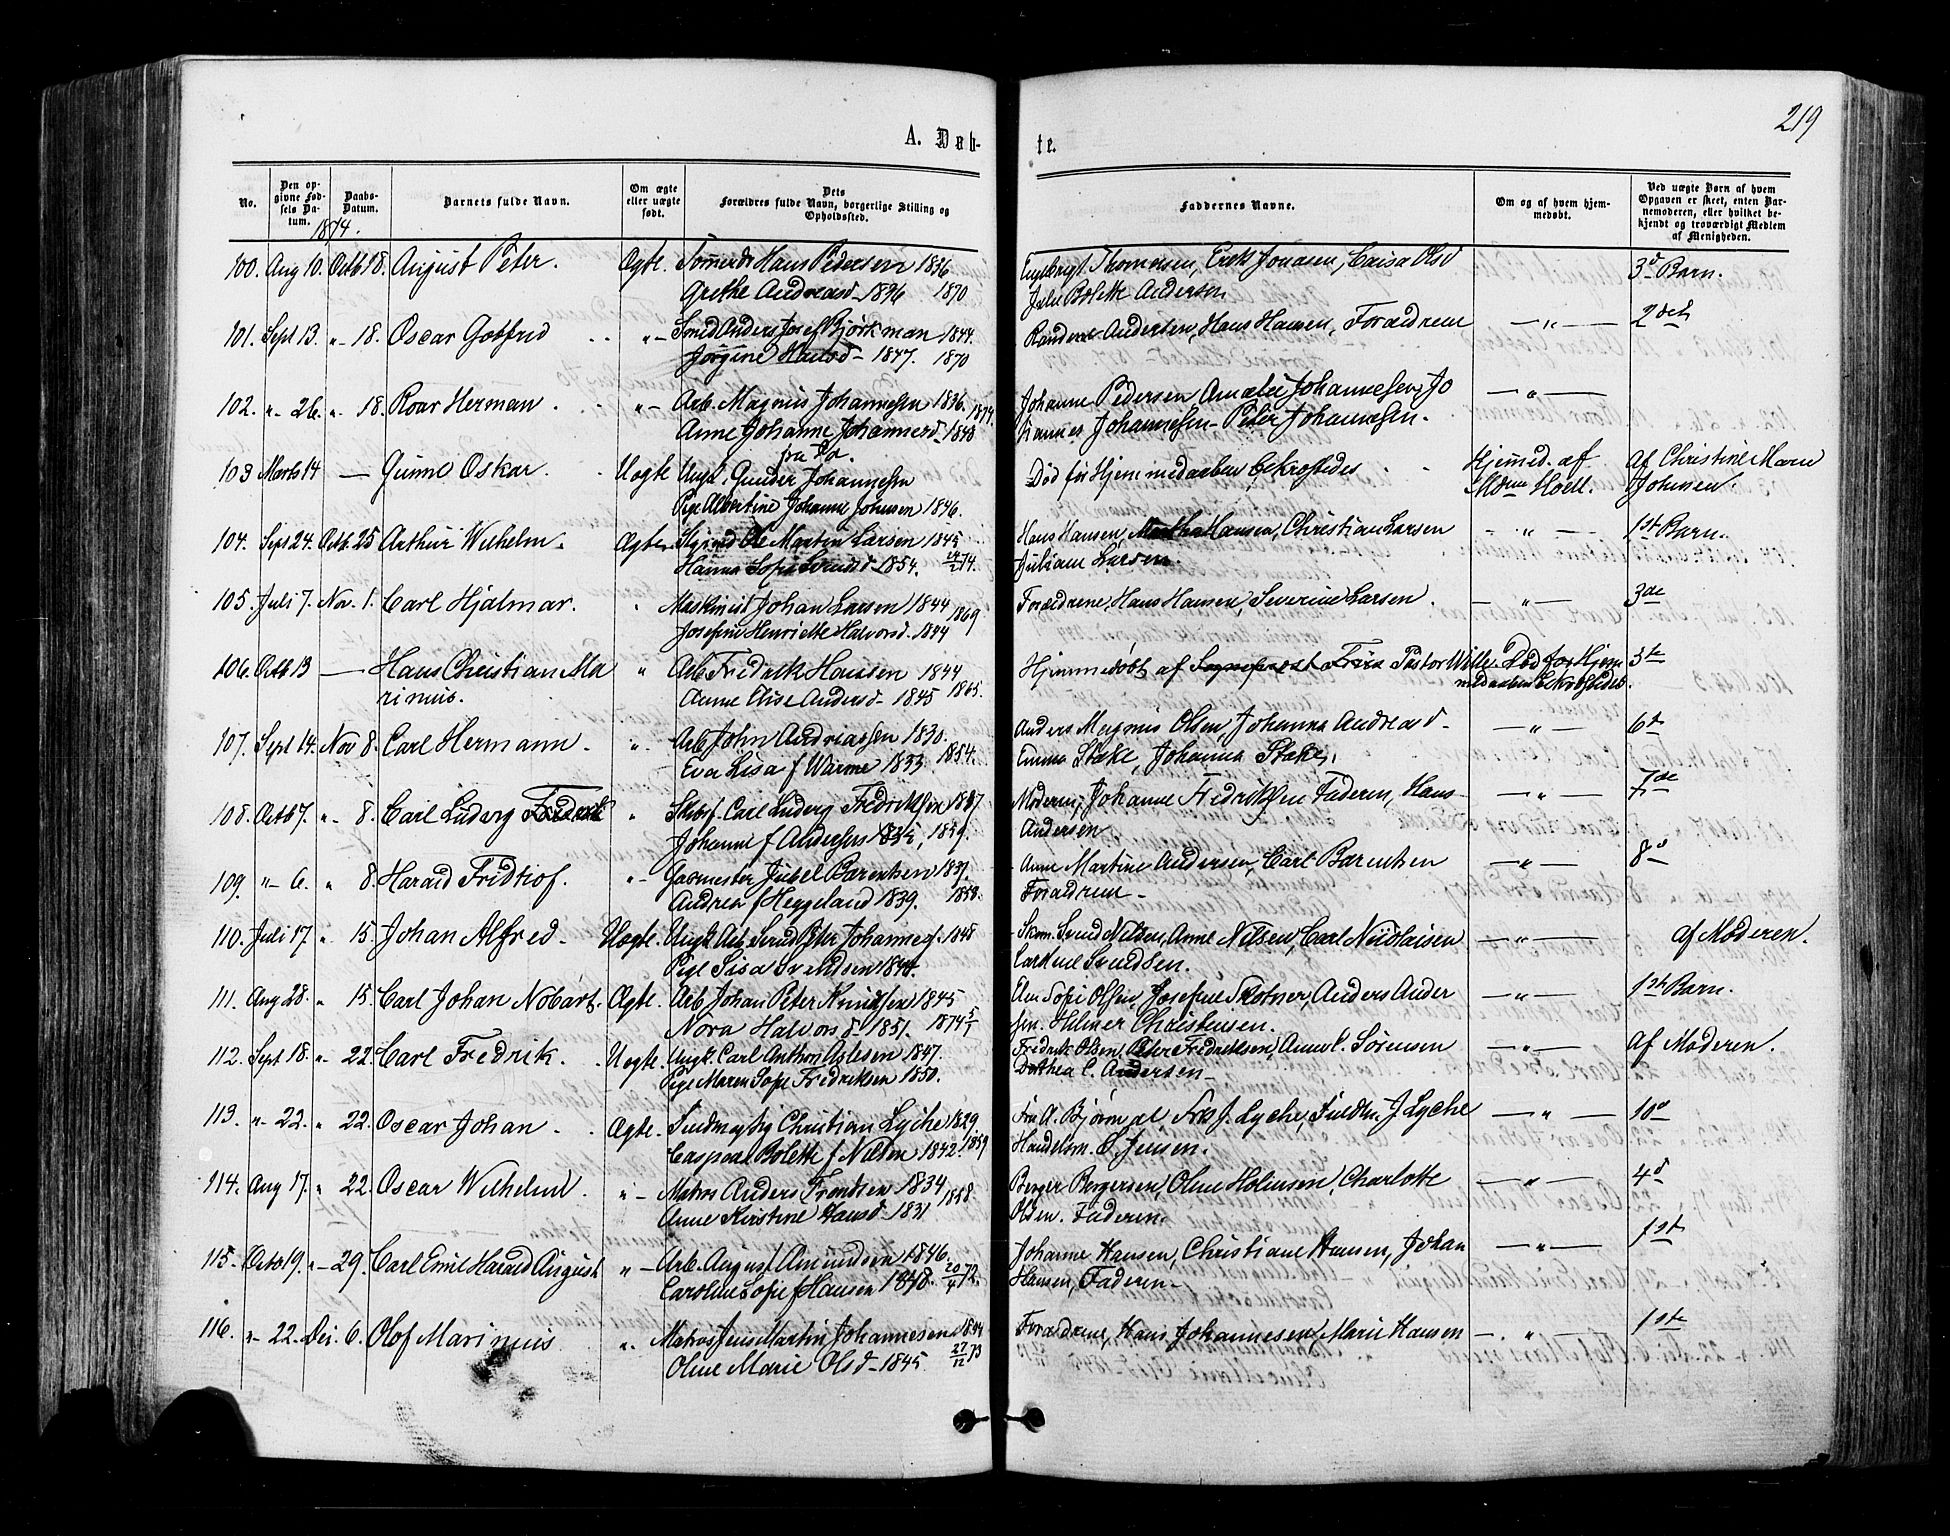 219
A. Døb-
te.
No.
Den op-
givne Fød-
sels Da-
tum.
Daabs-
Datum.
Barnets fulde Navn.
Om ægte
eller uægte
født.
Dets
Forældres fulde Navn, borgerlige Stilling og
Opholdssted.
Faddernes Navne.
Om og af hvem hjem-
medøbt.
Ved uægte Børn af hvem
Opgaven er skeet, enten Bar-
nemoderen, eller hvilket be-
kjendt og troværdigt Medlem
af Menigheden.
1874.
100. Aug 10. Octb 18. August Peter. Ægte. Hans Pedersen 1836 Thomesen, Erik Jonasen, Olsd 3d Barn.
Grethe Andreasd 1836 1870 Bolette Andersen
101. Sept 13. " 18. Oscar Gotfred " Smed Anders Josef Bjørkman 1844. Andersen, Hans Hansen, Forældrene — " — 2det
Jørgine Hansd - 1847. 1870
102. " 26. " 18. Roar Herman. " Arb. Magnus Johannesen 1836. 1874. Johanne Pedersen, Johannesen, Jo — " —
Anne Johanne Johannesd 1848 hannes Johannesen - Peter Johannesen.
103 Marts 14 — Gunne Oskar. Uægte Ungk. Gunder Johannesen Død før Hjemmedaaben bekræftedes Hjemmed. af af Christine Maren
Pige Albertine Johanne Johnsen 1846. Mdme Holl. Johnsen.
104. Sept 24. Octb. 25 Arthur Wilhelm. Ægte Ole Martin Larsen Hans Hansen, Hansen, Christian Larsen — " — 1st Barn.
Hanna Sofie 1854. Juliane Larsen.
105. Juli 7. Nov. 1. Carl Hjalmar. " Maskinist Johan Larsen 1844 1869 Forældrene, Hans Hansen, Severine Larsen. — " — 3de
Josefine Henriette Halvorsd. 1844
106. Octb 13 — Hans Christian Ma " Arb Fredrik Hansen 1844 Hjemmedøbt af Sognepræst Friis Pastor Wille. Død før Hjem 5te
rinius. Anne Elise Andersd - 1845 1865. medaaben bekræftedes.
107. Sept 14. Nov 8. Carl Hermann. " Arb John Andreassen 1830. Anders Magnus Olsen, Johanna Andreasd - — " — 6te
Eva Lisa f Warme 1833 1854. Emma Stake, Johanna Stake.
108. Octb 7. " 8. Carl Ludvig Fredrik " Carl Ludvig Fredriksen 1837 Moderen, Johanne Fredriksen Faderen, Hans — " — 7de
Johanne f Andersen 1859. Andersen.
109. " 6. " 8. Harald Fridtiof. " Gasmester Jubel Barentsen 1831. Anne Martine Andersen, Carl Barentsen — " — 8d
Andrea f Heggeland 1839. 1858. Forældrene -
110. Juli 17. " 15. Johan Alfred. Uægte. Ungk. Arb. Svend Peter Johannes. 1848 Svend Nilsen, Anne Nilsen, Carl Nicolaisen — " — af Moderen.
Pige Lisa Svendsen Svendsen.
111. Aug 28. " 15. Carl Johan Nobart. Ægte. Arb Johan Peter Knudsen 1845 Sofie Olsen, Josefine Skotner, Anders Ander — " — 1st Barn.
Nora Halvorsd - 1851. 1874 5/1 sen. Hilmer Christensen.
112. Sept 18. " 22. Carl Fredrik. Uægte. Ungk. Carl Anthon Aslesen 1847. Fredrik Olsen, Peter Fredriksen, Anne C. Sørensen — " — af Moderen.
Pige Maren Sofie Fredriksen 1850. Dorthea C. Andersen -
113. " 22. " 22. Oscar Johan. Ægte. Christian Lyche 1829. Fru A. Bjørn, Frk J. Lyche, J Lyche — " — 10d
Bolette f Nilsen 1842. 1859 Handelsm. S. Jensen.
114. Aug 17. " 22. Oscar Wilhelm " Matros Anders Frandsen 1834 1858 Berger Bergersen, Oline Holmsen, Charlotte — " — 4d
Anne Kirstine Hansd - 1831 Olsen. Faderen.
115. Octb 19. " 29. Carl Emil Harald August " Arb. August Amundsen 1846. Johanne Hansen, Christiane Hansen, Johan — " — 1st
Caroline Sofie f Hansen 1848. 20/4 72. Hansen, Faderen -
116. " 22. Dec. 6. Olof Marinius " Matros Jens Martin Johannesen 1844 Forældrene, Hans Johannesen Marie Hansen — " 1ste
Oline Marie Olsd - 1845 27/12 73